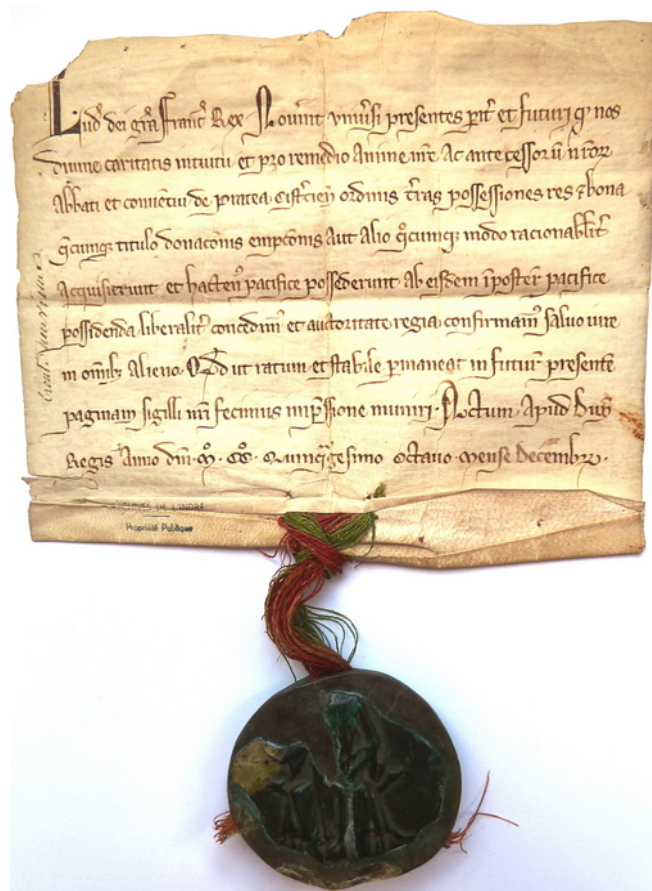 Lud᷒ dei grã Franc᷒ Rex Nouĩnt vniũsi presentes pit̃ et futuri ꝙ nos
diuine caritatis intuitu et pro remedio Anime nr̃e Ac ante cessorũ nr̃oꝝ
Abbati et conuẽtui de pratea Cist̃cień ordinis t̃ras possessiones res ⁊ bona
q̃cumqꝫ titulo donac̃onis empc̃onis Aut Alio q̃cumqꝫ modo racionabilit̃
Acquisierunt et hacteñ pacifice possederunt Ab eisdem ĩposter̃ pacifice
possidenda liberalit̃ concedim᷒ et auctoritate regia confirmam᷒ saluo iure
in omĩbꝫ Alieno. Qd̃ ut ratum et stabile ꝑmaneat in futur̃ presentẽ
paginam sigilli nr̃i fecimus imp̃ssione muniri. Actum Apud
Regis Anno dñi .Mͦ. CCͦ. Quinq̃gesimo Octauo Mense Decembr̃.
ARCHIVES DE L'INDRE
Propriété Publique